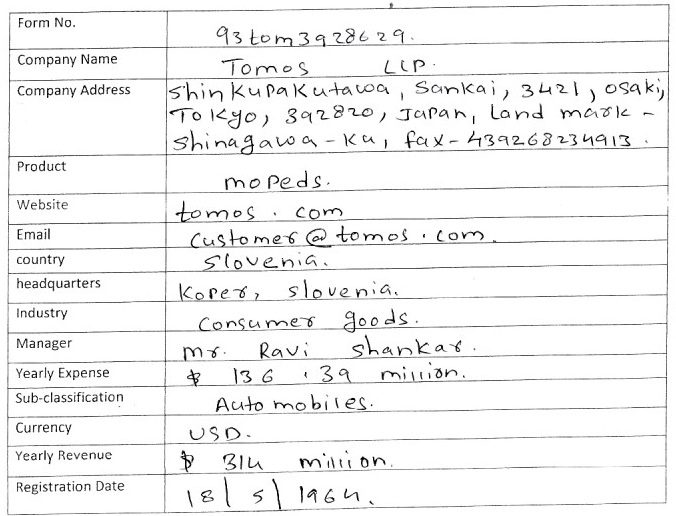 Form No. 93tom3928629.
Company Name Tomos LLP.
Company Address Shinkupakutawa, Sankai, 3421, osaki,
Tokyo, 392820, Japan, Land mark -
Shinagawa - Ku, fax - 439268234913.
Product mopeds.
Website tomos . com
Email Customer@tomos.com.
country Slovenia.
headquarters Koper, slovenia.
Industry Consumer goods.
Manager mr. Ravi shankar.
Yearly Expense $ 136 . 39 million.
Sub-classification Automobiles.
Currency USD.
Yearly Revenue $ 314 million.
Registration Date 18/5/1964.